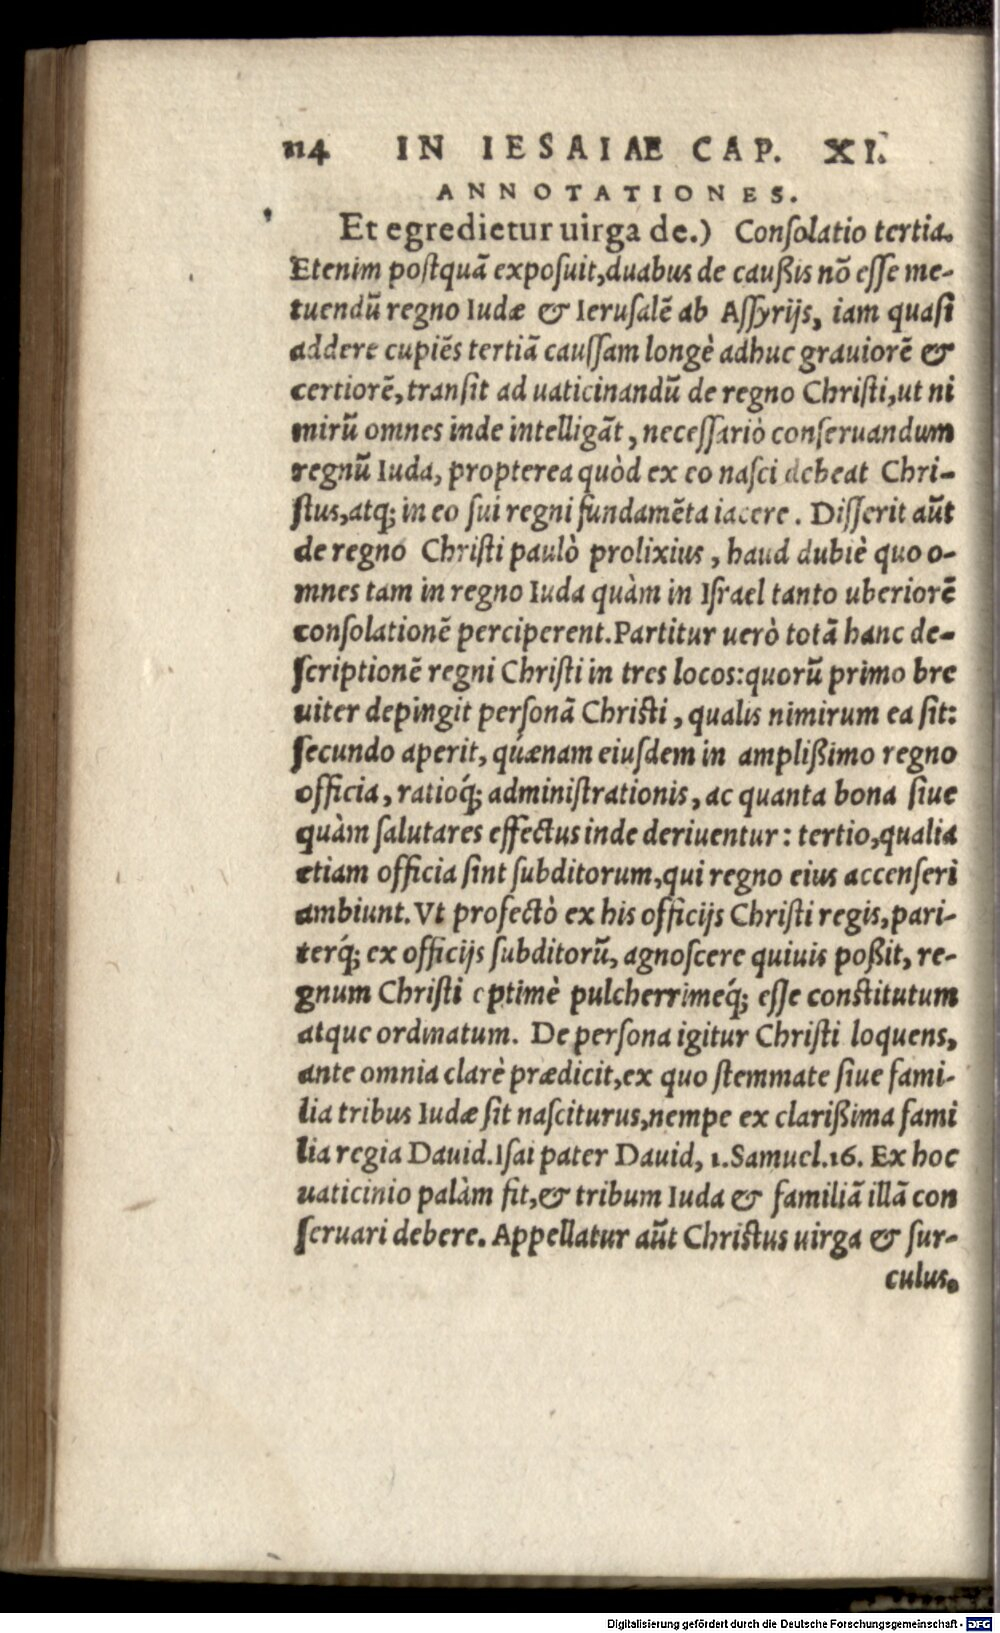 114 IN IESAIAE CAP. XI.
ANNOTATIONES.
Et egredietur uirga de.) Conſolatio tertia.
Etenim poſtquã expoſuit, duabus de cauſſis nõ eſſe me-
tuendũ regno Iudæ & Ieruſalẽ ab Aſſyrijs, iam quaſi
addere cupiẽs tertiã cauſſam longè adhuc grauiorẽ &
certiorẽ, tranſit ad uaticinandũ de regno Chriſti, ut ni
mirũ omnes inde intelligãt, neceſſariò conſeruandum
regnũ Iuda, propterea quòd ex eo naſci debeat Chri-
ſtus, atq; in eo ſui regni fundamẽta iacere. Diſſerit aũt
de regno Chriſti paulò prolixius, haud dubiè quo o-
mnes tam in regno Iuda quàm in Iſrael tanto uberiorẽ
conſolationẽ perciperent. Partitur uerò totã hanc de-
ſcriptionẽ regni Chriſti in tres locos: quorũ primo bre
uiter depingit perſonã Chriſti, qualis nimirum ea ſit:
ſecundo aperit, quænam eiuſdem in ampliſſimo regno
officia, ratioq́; adminiſtrationis, ac quanta bona ſiue
quàm ſalutares effectus inde deriuentur: tertio, qualia
etiam officia ſint ſubditorum, qui regno eius accenſeri
ambiunt. Vt profectò ex his officijs Chriſti regis, pari-
terq́; ex officijs ſubditorũ, agnoſcere quiuis poſſit, re-
gnum Chriſti optimè pulcherrimeq́; eſſe conſtitutum
atque ordinatum. De perſona igitur Chriſti loquens,
ante omnia clarè prædicit, ex quo ſtemmate ſiue fami-
lia tribus Iudæ ſit naſciturus, nempe ex clariſſima fami
lia regia Dauid. Iſai pater Dauid, 1. Samuel. 16. Ex hoc
uaticinio palàm fit, & tribum Iuda & familiã illã con
ſeruari debere. Appellatur aũt Chriſtus uirga & ſur-
culus.
Digitalisierung gefördert durch die Deutsche Forschungsgemeinschaft - DFG